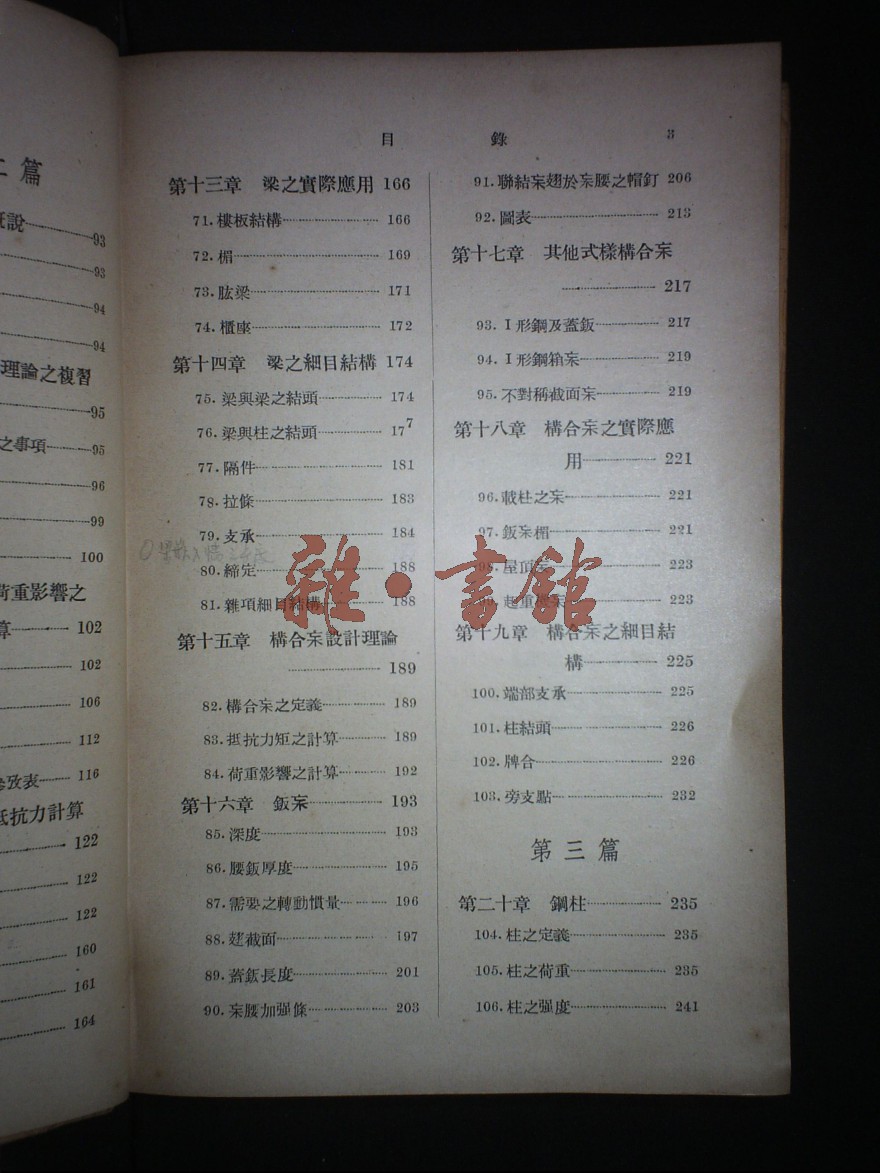 二篇
說 93
93
94
94
理論之複習
95
之事項 95
96
99
100
荷重影響之
算 102
102
106
112
參攷表 116
抵抗力計算
122
122
122
160
161
164
目 錄 3
第十三章 梁之實際應用 166
71. 樓板結構 166
72. 楣 169
73. 肱梁 171
74. 櫃座 172
第十四章 梁之細目結構 174
75. 梁與梁之結頭 174
76. 梁與柱之結頭 177
77. 隔件 181
78. 拉條 183
79. 支承 184
80. 締定 188
81. 雜項細目結構 188
第十五章 構合杗設計理論
189
82. 構合杗之定義 189
83. 抵抗力矩之計算 189
84. 荷重影響之計算 192
第十六章 鈑杗 193
85. 深度 193
86. 腰鈑厚度 195
87. 需要之轉動慣量 196
88. 翅截面 197
89. 蓋鈑長度 201
90. 杗腰加强條 203
91. 聯結杗翅於杗腰之帽釘 206
92. 圖表 213
第十七章 其他式樣構合杗
217
93. I形鋼及蓋鈑 217
94. I形鋼箱杗 219
95. 不對稱截面杗 219
第十八章 構合杗之實際應
用 221
96. 載柱之杗 221
97. 鈑杗楣 221
98. 屋頂杗 223
99. 起重機杗 223
第十九章 構合杗之細目結
構 225
100. 端部支承 225
101. 柱結頭 226
102. 牌合 226
103. 旁支點 232
第三篇
第二十章 鋼柱 235
104. 柱之定義 235
105. 柱之荷重 235
106. 柱之强度 241
雜·書館